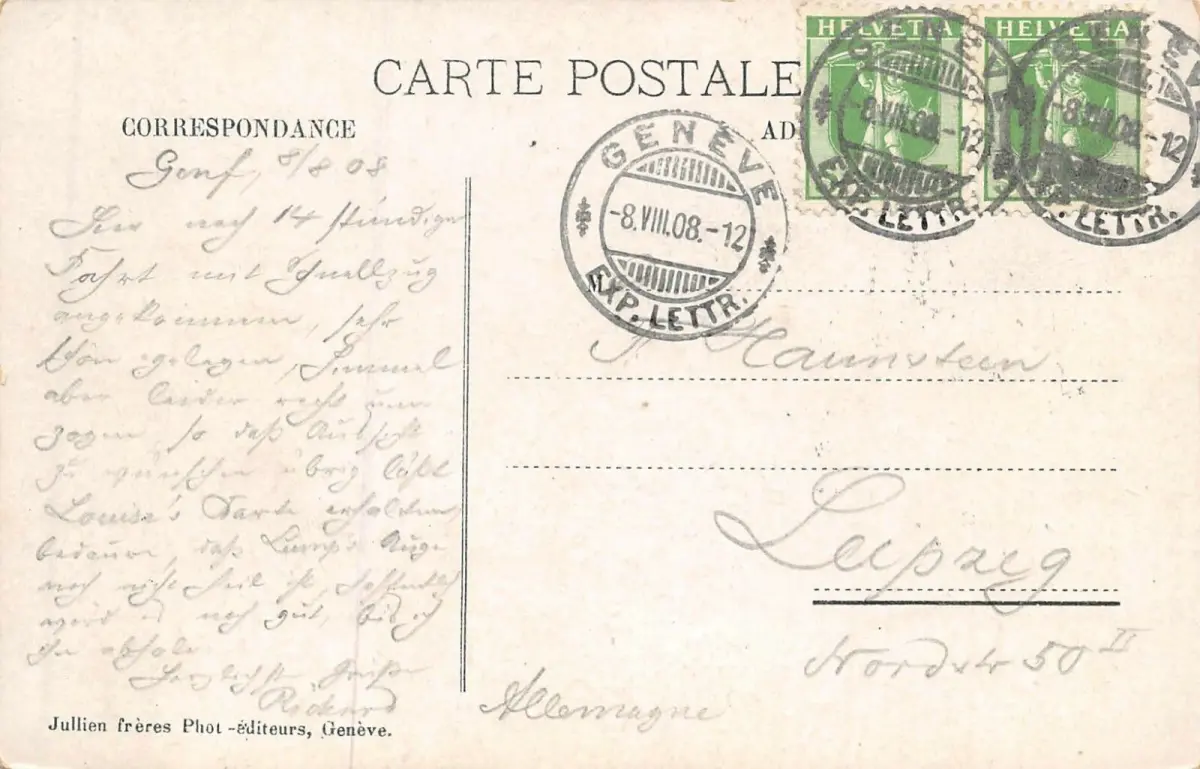 CARTE POSTALE
CORRESPONDANCE
AD
HELVETIA
HELVETIA
GENÈVE
-8.VIII.08.-12
EXP. LETTR.
GENÈVE
-8.VIII.08.-12
EXP. LETTR.
GENÈVE
-8.VIII.08.-12
EXP. LETTR.
Genf, 8/8 08
Hier nach 14 stündiger
Fahrt mit Schnellzug
angekommen, sehr
schön gelegen, Himmel
aber leider recht um
zogen, so daß Aussicht
zu wünschen übrig läßt
Louise's Karte erhalten,
bedaure, daß Auge
noch nicht heil ist, hoffentlich
wird noch gut, bis ich
ihn abhole
Herzlichste Grüße
Richard
M
Haunstein
Leipzig
Nordstr 50 II
Allemagne
Jullien frères Phot.-éditeurs, Genève.